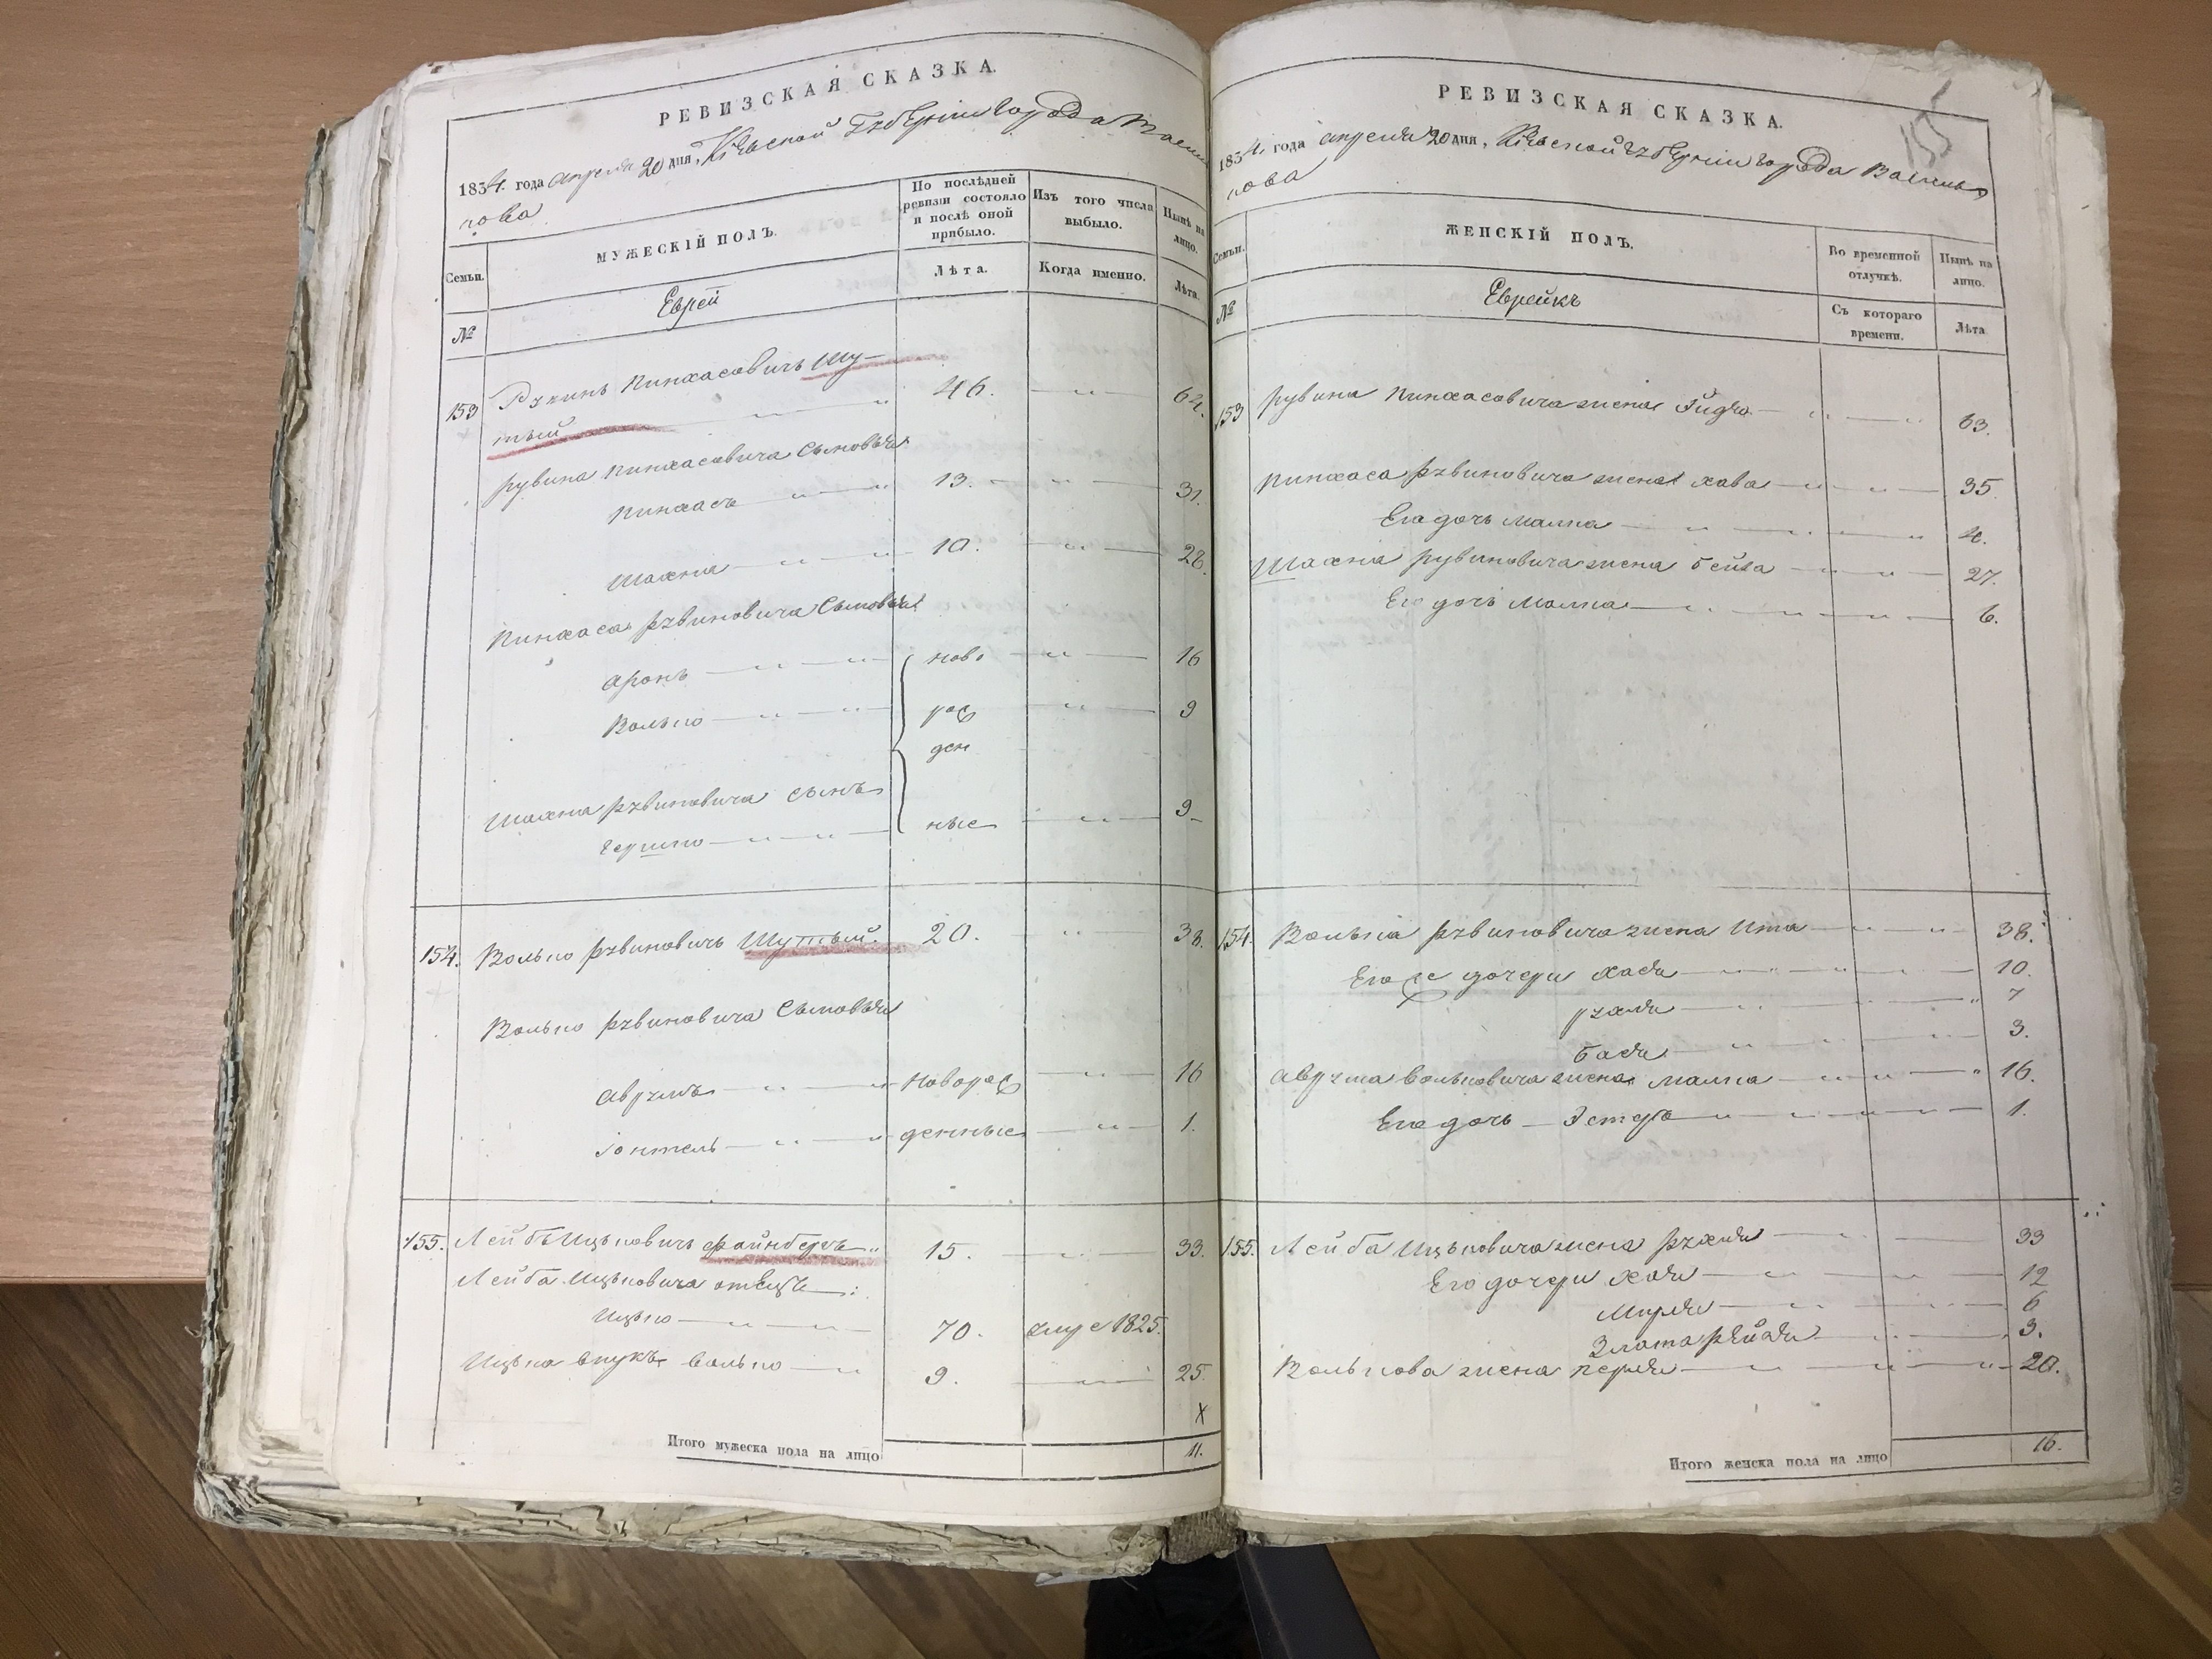 РЕВИЗСКАЯ СКАЗКА.
1834. года апреля 20 дня, Кіевской Губерніи Города Василь
кова
Семьи.
МУЖЕСКІЙ ПОЛЪ.
По послѣдней ревизіи состояло и послѣ оной прибыло.
Изъ того числа выбыло.
Нынѣ на лицо.
№
Еврей
Лѣта.
Когда именно.
Лѣта.
153 Рувинъ Пинхасовичъ Шу-
тый 46. 64.
Рувина Пинхасовича Сыновья
Пинхасъ 13. 31.
Шахна 10. 28.
Пинхаса Рувиновича Сыновья
Аронъ ново 16
Волько рож 9
ден
Шахна Рувиновича сынъ
Гершко ные 9
154. Волько Рувиновичъ Шутый. 20. 38.
Волько Рувиновича Сыновья
Аврумъ новорож 16
Іонтель денные 1.
155. Лейбъ Ицковичъ Файнбергъ 15. 33.
Лейба Ицковича отецъ:
Ицко 70. умре 1825.
Ицка внукъ Волько 9. 25.
х
Итого мужеска пола на лицо 11.
РЕВИЗСКАЯ СКАЗКА.
155
1834. года апреля 20 дня, Кіевской Губерніи Города Василь
кова
Семьи.
ЖЕНСКІЙ ПОЛЪ.
Во временной отлучкѣ.
Нынѣ на лицо.
№
Еврейкъ
Съ котораго времени.
Лѣта
153 Рувина Пинхасовича жена 63.
Пинхаса Рувиновича жена Хава 35.
Его дочь Малка 4.
Шахна Рувиновича жена Бейла 27.
Его дочь Малка 6.
154. Волька Рувиновича жена Ита 38.
Его же дочери Хася 10.
Рухля 7
Бася 3.
Аврума Вольковича жена Малка 16.
Его дочь Эстеръ 1.
155. Лейба Ицковича жена Рухля 33
Его дочери Хая 12
Мирля 6
Злата Рейзя 3.
Волькова жена Перля 20.
Итого женска пола на лицо 16.